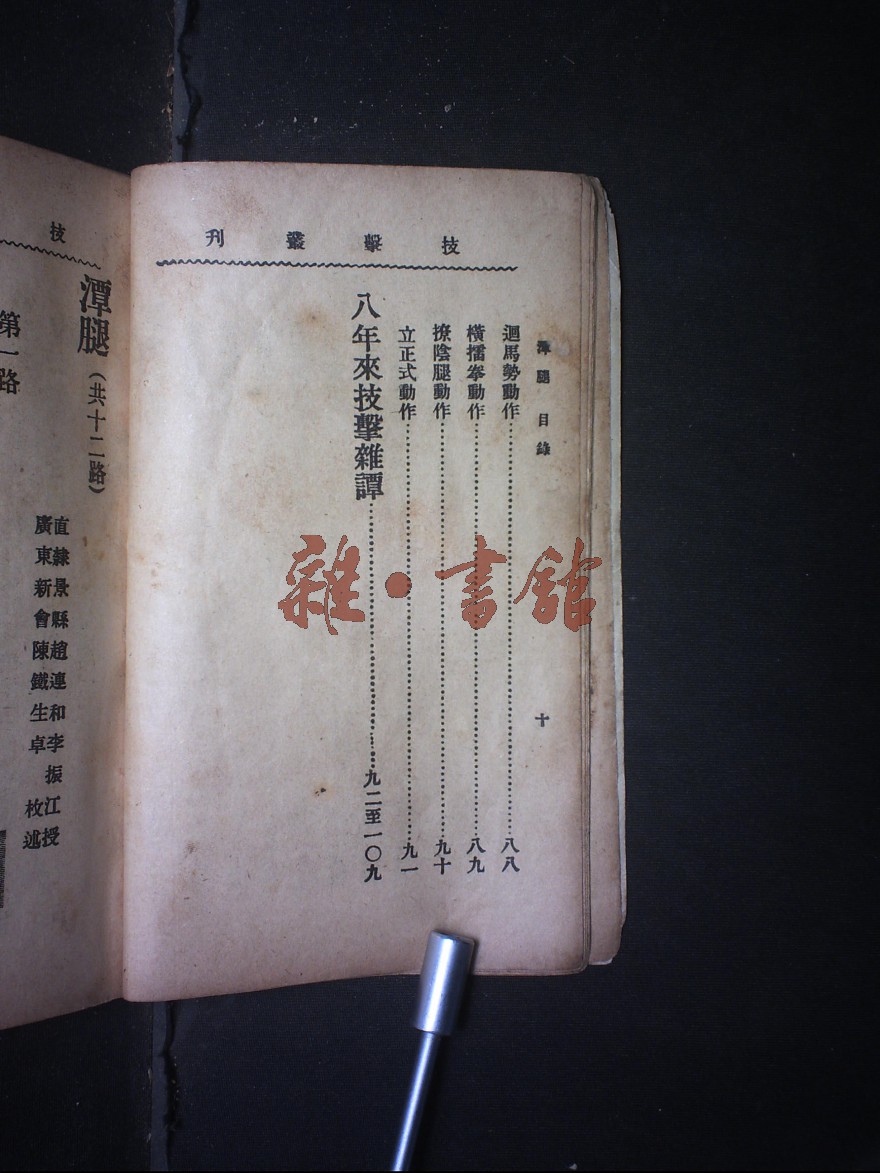 技擊叢刊
潭腿 目錄 十
迴馬勢動作……八八
橫擂拳動作……八九
撩陰腿動作……九十
立正式動作……九一
八年來技擊雜譚……九二至一〇九
技
潭腿（共十二路）
直隸景縣趙連和李振江授
廣東新會陳鐵生卓枚述
第一路
雜·書館